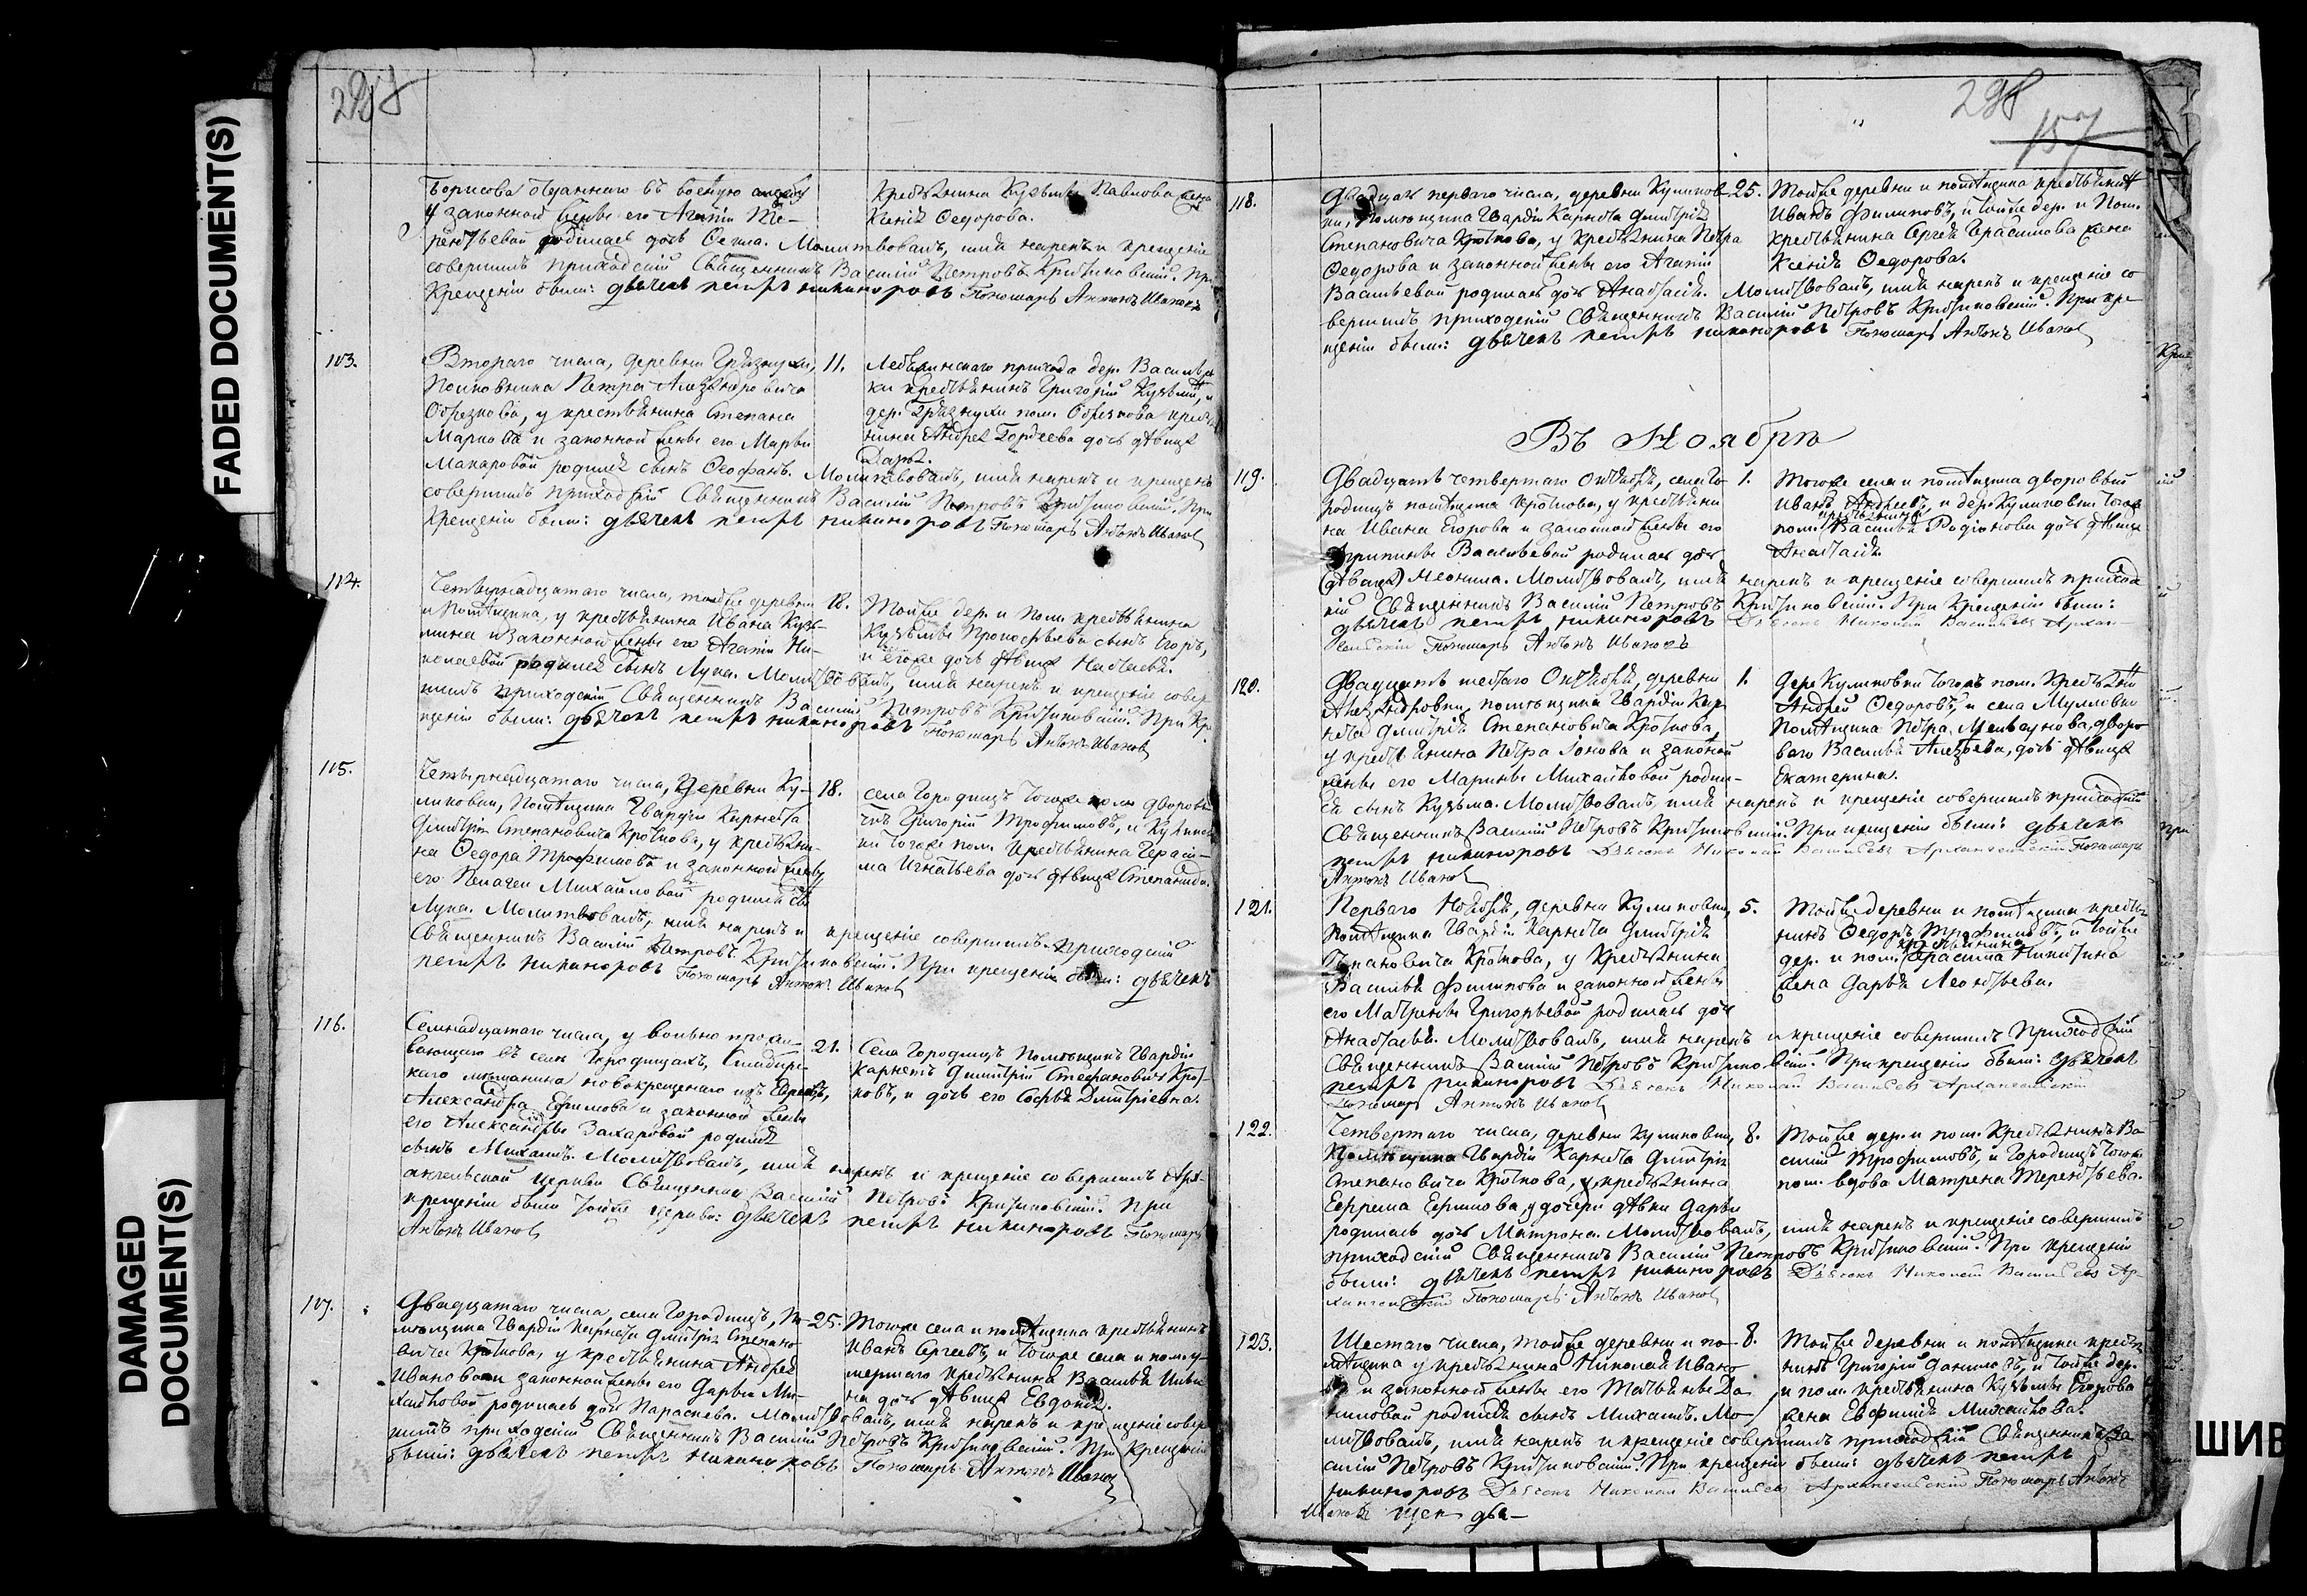 FADED DOCUMENT(S)
DAMAGED
DOCUMENT(S)
297
Борисова отданнаго въ военую службу
и законной жены его Агапіи Те-
рентьевой родилась дочь Ѳекла. Молитвовалъ, имя нарекъ и крещеніе
совершилъ приходскій Священникъ Василій Петровъ При
Крещеніи были: дьячекъ петръ никаноровъ Пономарь Антонъ Ивановъ
Крестьянина Кузьмы Павлова жена
Ксенія Ѳедорова.
113.
Втораго числа, деревни Грязнухи,
Полковника Петра Александровича
Обрезкова, у крестьянина Степана
Маркова и законной жены его Марѳы
Макаровой родился сынъ Ѳеофанъ. Молитвовалъ, имя нарекъ и крещеніе
совершилъ приходскій Священникъ Василій Петровъ При
Крещеніи были: дьячекъ петръ никаноровъ Пономарь Антонъ Ивановъ
11.
прихода дер. Василье
ки крестьянинъ Григорій Кузьминъ, и
дер. Грязнухи пом. Обрезкова кресть
нина Андрея Гордеева дочь дѣвица
Дарья.
114.
Четырнадцатаго числа, тойже деревни
и Помѣщика, у крестьянина Ивана Кузь-
мина и законной жены его Агапіи Ни-
колаевой родился сынъ Лука. Молитвовалъ, имя нарекъ и крещеніе совер
шилъ приходскій Священникъ Василій Петровъ При Кре
щеніи были: дьячекъ петръ никаноровъ Пономарь Антонъ Ивановъ
18.
Тойже дер. и Пом. крестьянина
Кузьмы Прокофьева сынъ Егоръ,
и егоже дочь дѣвица Настасья.
115.
Четырнадцатаго числа, Деревни Ку-
ликовки, Помѣщика Гвардіи Карнета
Дмитрія Степановича Кроткова, у крестьяни-
на Ѳедора Трофимова и законной жены
его Пелагеи Михайловой родился сынъ
Лука. Молитвовалъ, имя нарекъ и крещеніе совершилъ приходскій
Священникъ Василій Петровъ При крещеніи были: дьячекъ
петръ никаноровъ Пономарь Антонъ Ивановъ
18.
села Городищъ тогоже пом. дворовы
Григорій Трофимовъ, и Куликов
ки тогоже пом. крестьянина Гераси-
ма Игнатьева дочь дѣвица Степанида.
116.
Семнадцатаго числа, у вольно прожи-
вающаго въ селе Городищахъ, Симбирс
каго мѣщанина новокрещенаго изъ Евреевъ,
Александра Ефимова и законной жены
его Александры Захаровой родился
сынъ Михаилъ. Молитвовалъ, имя нарекъ и крещеніе совершилъ Арх-
ангельской церкви Священникъ Василій Петровъ При
крещеніи были тойже церкви: дьячекъ петръ никаноровъ Пономарь
Антонъ Ивановъ
21.
Села Городищъ Помѣщикъ Гвардіи
Карнетъ Димитрій Стефановичь Крот-
ковъ, и дочь его Софья Дмитріевна.
117.
Двадцатаго числа, села Городищъ, По-
мѣщика Гвардіи Карнета Дмитрія Степано-
вича Кроткова, у крестьянина Андрея
Иванова и законной жены его Дарьи Ми-
хайловой родилась дочь Параскева. Молитвовалъ, имя нарекъ и крещеніе совер
шилъ приходскій Священникъ Василій Петровъ При Крещеніи
были: дьячекъ петръ никаноровъ Пономарь Антонъ Ивановъ
25.
Тогоже села и помѣщика крестьянинъ
Иванъ Сергеевъ, и тогоже села и пом. у-
мершаго крестьянина Василья
на дочь дѣвица Евдокія.
298
157
118.
Двадцать перваго числа, деревни Куликов-
ки, Помѣщика Гвардіи Карнета Дмитрія
Степановича Кроткова, у крестьянина Петра
Ѳедорова и законной жены его Агапіи
Васильевой родилась дочь Анастасія. Молитвовалъ, имя нарекъ и крещеніе со
вершилъ приходскій Священникъ Василій Петровъ При кре-
щеніи были: дьячекъ петръ никаноровъ Пономарь Антонъ Ивановъ
25.
Тойже деревни и помѣщика крестьянинъ
Иванъ Филиповъ, и тойже дер. и Пом.
крестьянина Сергея Герасимова жена
Ксенія Ѳедорова.
Въ Ноябрѣ
119.
Двадцать четвертаго Октября, села Го
родищъ помѣщика Кроткова, у крестьяни
на Ивана Егорова и законной жены его
Агрипины Васильевой родилась дочь
(дѣвица) Неонила. Молитвовалъ, имя нарекъ и крещеніе совершилъ приход
кій Священникъ Василій Петровъ При Крещеніи были:
дьячекъ петръ никаноровъ Дьяконъ Николай Васильевъ Архан-
гельскій Пономарь Антонъ Ивановъ
1.
Тогоже села и помѣщика дворовый
Иванъ Андреевъ, и дер. Куликовки тогоже
пом. крестьянина Василья Родіонова дочь дѣвица
Анастасія.
120.
Двадцать шестаго Октября, деревни
Александровки, помѣщика Гвардіи Кар
нета Дмитрія Степановича Кроткова,
у крестьянина Петра Іонова и законой
жены его Марины Михайловой родил-
ся сынъ Кузьма. Молитвовалъ, имя нарекъ и крещеніе совершилъ приходскій
Священникъ Василій Петровъ При крещеніи были: дьячекъ
петръ никаноровъ Дьяконъ Николай Васильевъ Архангельскій Пономарь
Антонъ Ивановъ
1.
Дер. Куликовки тогожъ пом. Крестьянинъ
Андрей Ѳедоровъ, и села Мулловки
Помѣщика Петра дворо
ваго Василья Алексеева, дочь дѣвица
Екатерина.
121.
Перваго Ноября, деревни Куликовки,
Помѣщика Гвардіи Карнета Дмитрія
Степановича Кроткова, у Крестьянина
Василья Филипова и законной жены
его Матрены Григорьевой родилась дочь
Анастасія. Молитвовалъ, имя нарекъ и крещеніе совершилъ Приходскій
Священникъ Василій Петровъ При крещеніи были: дьячекъ
петръ никаноровъ Дьяконъ Николай Васильевъ Архангельскій
Пономарь Антонъ Ивановъ
5.
Тойже деревни и помѣщика крестья
нинъ Ѳедоръ Трофимовъ, и тойже
дер. и пом. крестьянина Герасима Никитина
жена Дарья Леонтьева.
122.
Четвертаго числа, деревни Куликовки,
Помѣщика Гвардіи Карнета Дмитрія
Степановича Кроткова, у крестьянина
Ефрема Ефимова, у дочери дѣвки Дарьи
родилась дочь Матрона. Молитвовалъ, имя нарекъ и крещеніе совершилъ
приходскій Священникъ Василій Петровъ При крещеніи
были: дьячекъ петръ никаноровъ Дьяконъ Николай Васильевъ Ар-
хангельскій Пономарь Антонъ Ивановъ
8.
Тойже дер. и пом. Крестьянинъ Ва
силій Трофимовъ, и Городищъ тогоже
пом. вдова Матрена Терентьева.
123.
Шестаго числа, тойже деревни и по-
мѣщика у крестьянина Николая Ивано
ва и законной жены его Татьяны Да
ниловой родился сынъ Михаилъ. Мо-
литвовалъ, имя нарекъ и крещеніе совершилъ приходскій Священникъ Ва
силій Петровъ При крещеніи были: дьячекъ петръ
никаноровъ Дьяконъ Николай Васильевъ Архангельскій Пономарь Антонъ
Ивановъ
8.
Тойже деревни и помѣщика крестья
нинъ Григорій Даниловъ, и тойже дер.
и пом. крестьянина Кузьмы Егорова
жена Евфимія Михайлова.
ШИВ